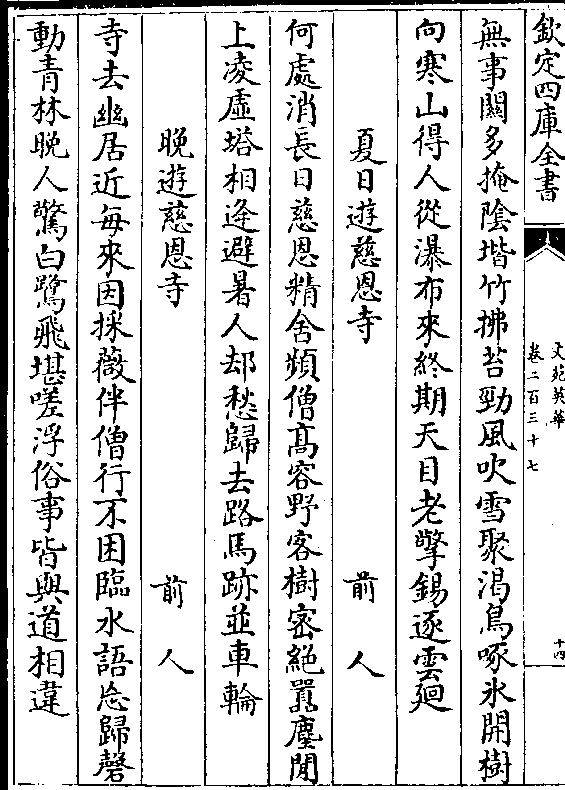 欽定四庫全書
文苑英華
卷二百三十七
十四
無事闗多掩陰堦竹拂苔勁風吹雪聚渇鳥啄氷開樹
向寒山得人從瀑布來終期天目老擎錫逐雲廻
夏日遊慈恩寺
前人
何處消長日慈恩精舍頻僧髙容野客樹宻絶囂塵閒
上凌虚塔相逄避暑人却愁歸去路馬跡並車輪
晩遊慈恩寺
前人
寺去幽居近每來因採薇伴僧行不困臨水語忘歸磬
動青林晩人驚白鷺飛堪嗟浮俗事皆與道相違